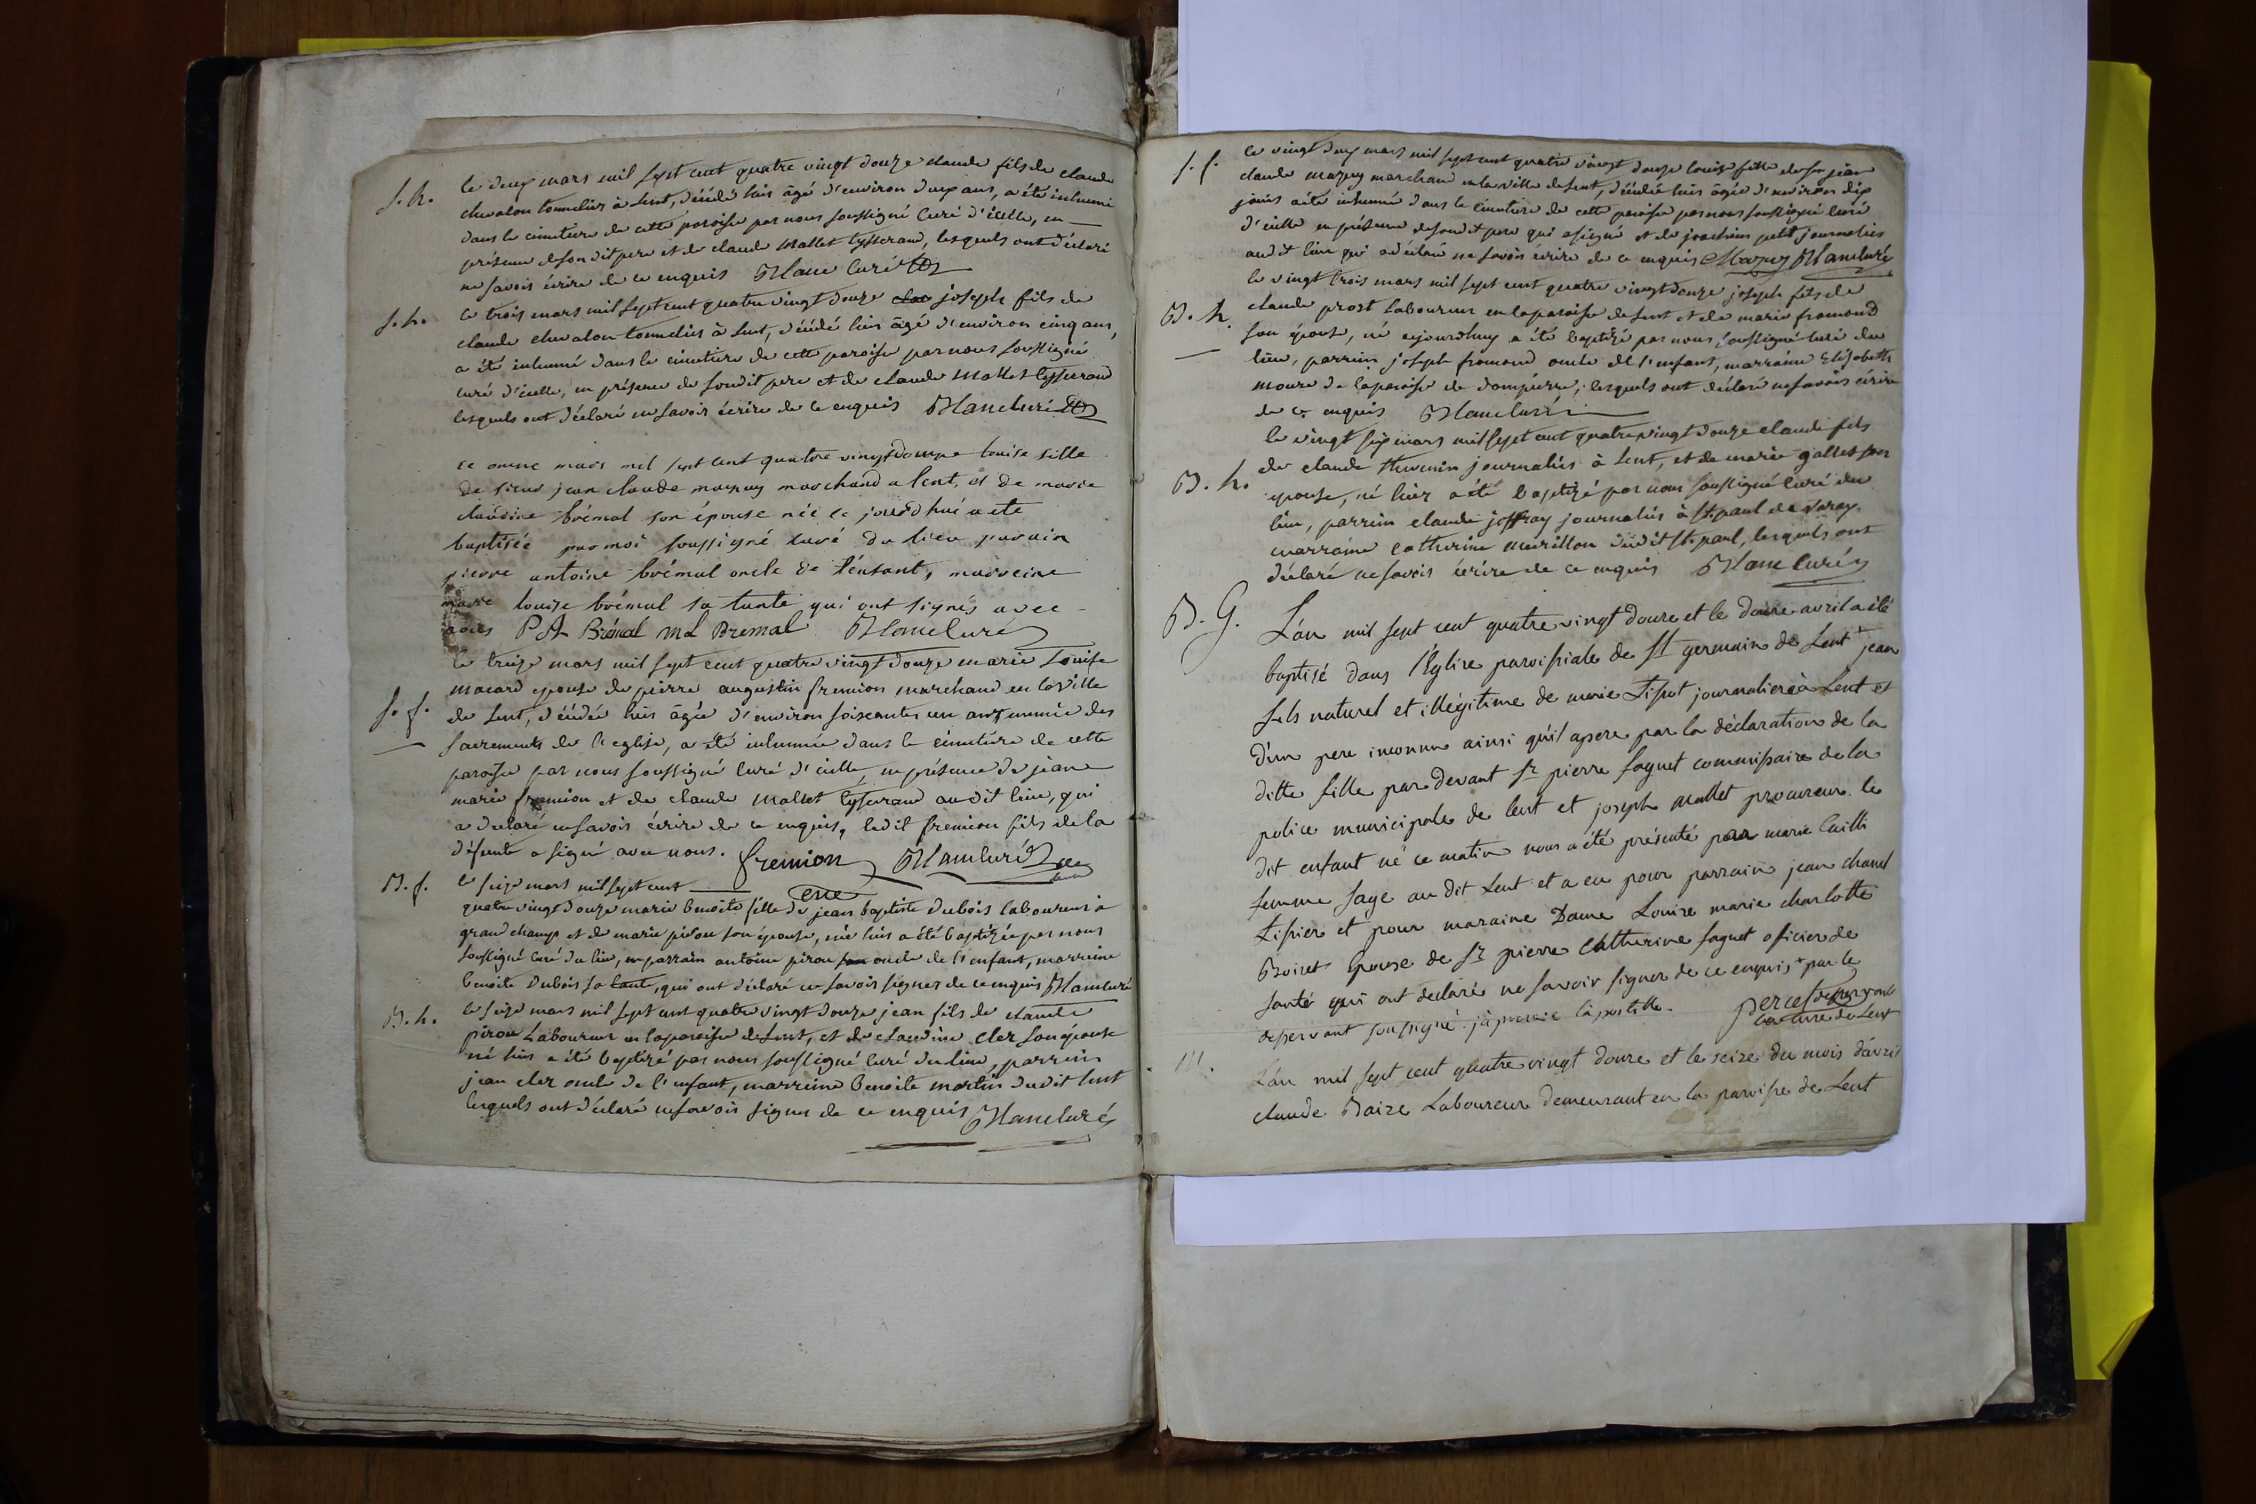 S. h.
le deux mars mil sept cent quatre vingt douze claude fils de claude
chevalon tonnelier à Lent, décédé hier âgé d'environ deux ans, a été inhumé
dans le cimetière de cette paroisse par nous soussigné Curé d'icelle, en
présence de son dit pere et de claude Mallet tysserand, lesquels ont déclaré
ne savoir écrire de ce enquis Blanc Curé
S. h.
le trois mars mil sept cent quatre vingt douze joseph fils de
claude chevalon tonnelier à Lent, décédé hier âgé d'environ cinq ans,
a été inhumé dans le cimetière de cette paroisse par nous soussigné
curé d'icelle, en présence de son dit pere et de claude Mallet tysserand
lesquels ont déclaré ne savoir écrire de ce enquis Blanc Curé
le onze mars mil sept cent quatre vingt douze louise fille
de sieur jean claude mazuy marchand a lent, et de marie
claudine brémal son épouse née ce jourdhui a ete
baptisée par moi soussigné curé du lieu parain
pierre antoine brémal oncle de l'enfant, mareine
marie louise brémal sa tante qui ont signés avec
nous PA Brémal ml Bremal Blanc Curé
S. f.
le treize mars mil sept cent quatre vingt douze marie Louise
macard epouse de pierre augustin fremion marchand en la Ville
de Lent, décédée hier âgée d'environ soixante un ans munie des
sacrements de l'eglise, a été inhumée dans le cimetière de cette
paroisse par nous soussigné Curé d'icelle, en présence de jean
marie fremion et de claude Mallet tysserand au dit lieu, qui
a declaré ne savoir écrire de ce enquis, ledit fremion fils de la
défunte a signé avec nous. fremion Blanc Curé
B. f.
le seize mars mil sept cent
quatre vingt douze marie benoite fille de jean baptiste Dubois laboureur à
grand champ et de marie pirou son épouse, née hier a été baptizée par nous
soussigné Curé du lieu, en parrain antoine pirou oncle de l'enfant, marraine
benoite Dubois sa tante, qui ont déclaré ne savoir signer de ce enquis Blanc Curé
B. h.
le seize mars mil sept cent quatre vingt douze jean fils de claude
pirou Laboureur en la paroisse de Lent, et de claudine Cler son épouse
né hier a été baptizé par nous soussigné Curé du lieu, parrain
jean cler oncle de l'enfant, marraine benoite martin dudit Lent
lesquels ont déclaré ne savoir signer de ce enquis Blanc Curé
S. f.
le vingt deux mars mil sept cent quatre vingt douze louise fille de Sr jean
claude mazuy marchand en la ville de Lent, décédée hier âgée d'environ dix
jours a été inhumée dans le cimetière de cette paroisse par nous soussigné Curé
d'icelle en présence de son dit pere qui a signé et de joachim petit journalier
audit lieu qui a déclaré ne savoir écrire de ce enquis Mazuy Blanc Curé
B. h.
le vingt trois mars mil sept cent quatre vingt douze joseph fils de
claude prost laboureur en la paroisse de Lent et de marie fromond
son épouse, né aujourdhuy a été baptizé par nous soussigné Curé du
lieu, parrain joseph fromond oncle de l'enfant, marraine Elizabeth
moure de la paroisse de dompierre, lesquels ont déclaré ne savoir écrire
de ce enquis Blanc Curé
B. h.
le vingt six mars mil sept cent quatre vingt douze claude fils
de claude thevenin journalier à Lent, et de marie gallet son
epouse, né hier a été baptizé par nous soussigné Curé du
lieu, parrain claude joffray journalier à St. paul de Varax,
marraine catherine Murillon dudit St. paul, lesquels ont
déclaré ne savoir écrire de ce enquis Blanc Curé
B. G.
L'an mil sept cent quatre vingt douze et le douze avril a été
baptisé dans l'Eglise paroissiale de St germain de Lent + jean
fils naturel et illégitime de marie Tissot journaliere à Lent et
d'un pere inconnu ainsi qu'il apere par la déclaration de la
ditte fille par devant Sr pierre faguet commissaire de la
police municipale de lent et joseph Mallet procureur le
dit enfant né ce matin nous a été présenté par marie Cailli
femme sage au dit Lent et a eu pour parrain jean chanel
Tissier et pour maraine Dame Louise marie charlotte
Boiret Epouse de Sr pierre Catherine faguet oficier de
santé qui ont declaré ne savoir signer de ce enquis + par le
desservant soussigné. j'approuve l'apostille. percet desservant
la cure de Lent
M.
L'an mil sept cent quatre vingt douze et le seize du mois d'avril
claude Baize Laboureur demeurant en la paroisse de Lent